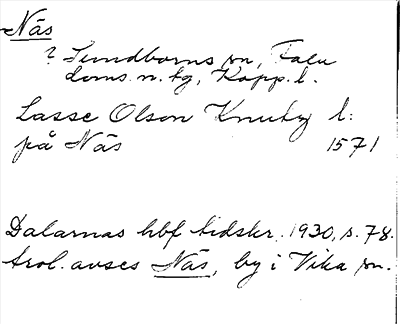 Näs
? Sundborns sn, Falu
doms. n. tg, Kopp. l.
Lasse Olson Knuby l:
på Näs 1571
Dalarnas hbf tidskr. 1930, s. 78.
trol. avses Näs, by i Vika sn.